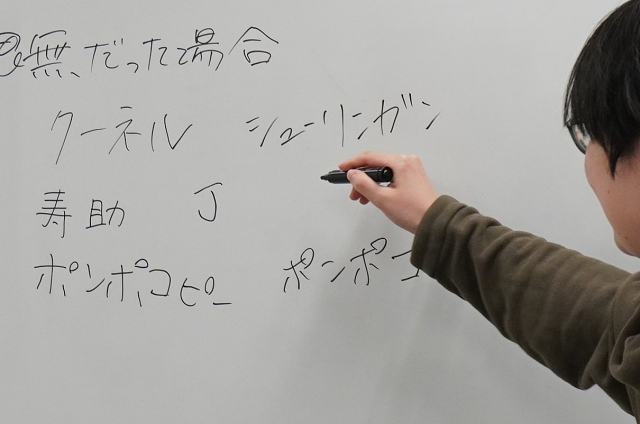 無だった場合
クーネル シューリンガン
寿助 J
ポンポコピー ポンポコ